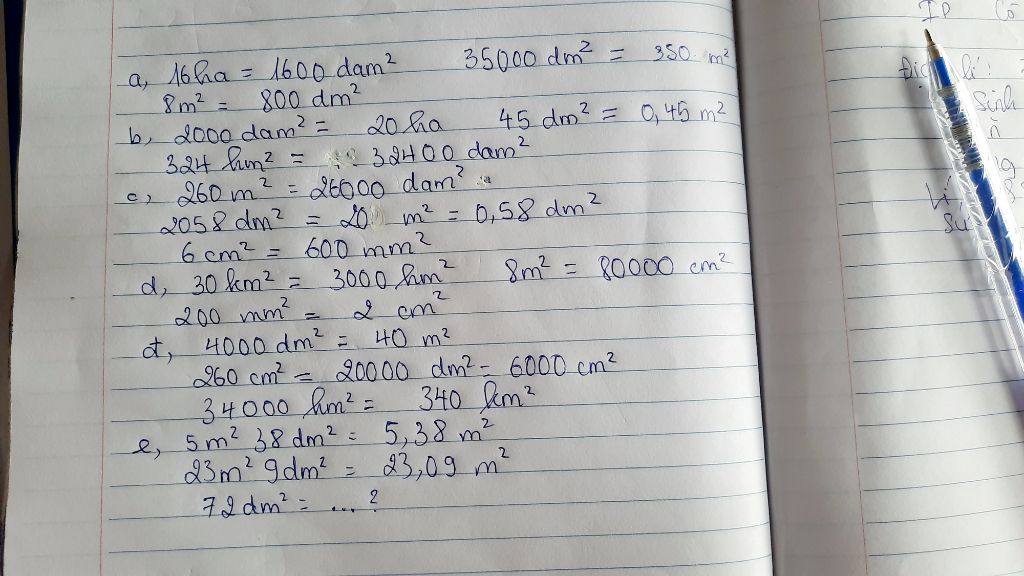 a, 16ha = 1600 dam² 35000 dm² = 350 m²
8m² = 800 dm²
b, 2000 dam² = 20 ha 45 dm² = 0,45 m²
324 hm² = 32400 dam²
c, 260 m² = 26000 dam²
2058 dm² = 20 m² = 0,58 dm²
6 cm² = 600 mm²
d, 30 km² = 3000 hm² 8m² = 80000 cm²
200 mm² = 2 cm²
đ, 4000 dm² = 40 m²
260 cm² = 20000 dm² = 6000 cm²
34000 hm² = 340 km²
e, 5m² 38 dm² = 5,38 m²
23m² 9dm² = 23,09 m²
72 dm² = ... ?
Sinh